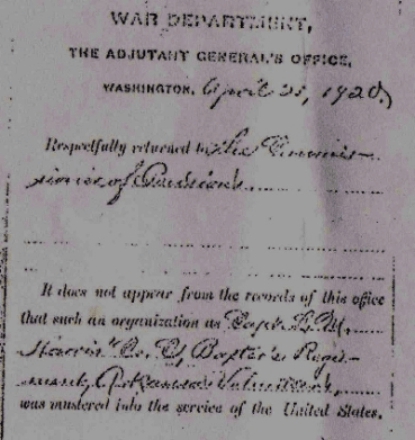 WAR DEPARTMENT,
THE ADJUTANT GENERAL'S OFFICE,
WASHINGTON, April 21, 1920,
Respectfully returned to the Commis-
sioner of Pensions
It does not appear from the records of this office
that such an organization as Capt. L. M.
Harris' Co. Baxter's Regi-
ment, Arkansas Volunteers,
was mustered into the service of the United States.